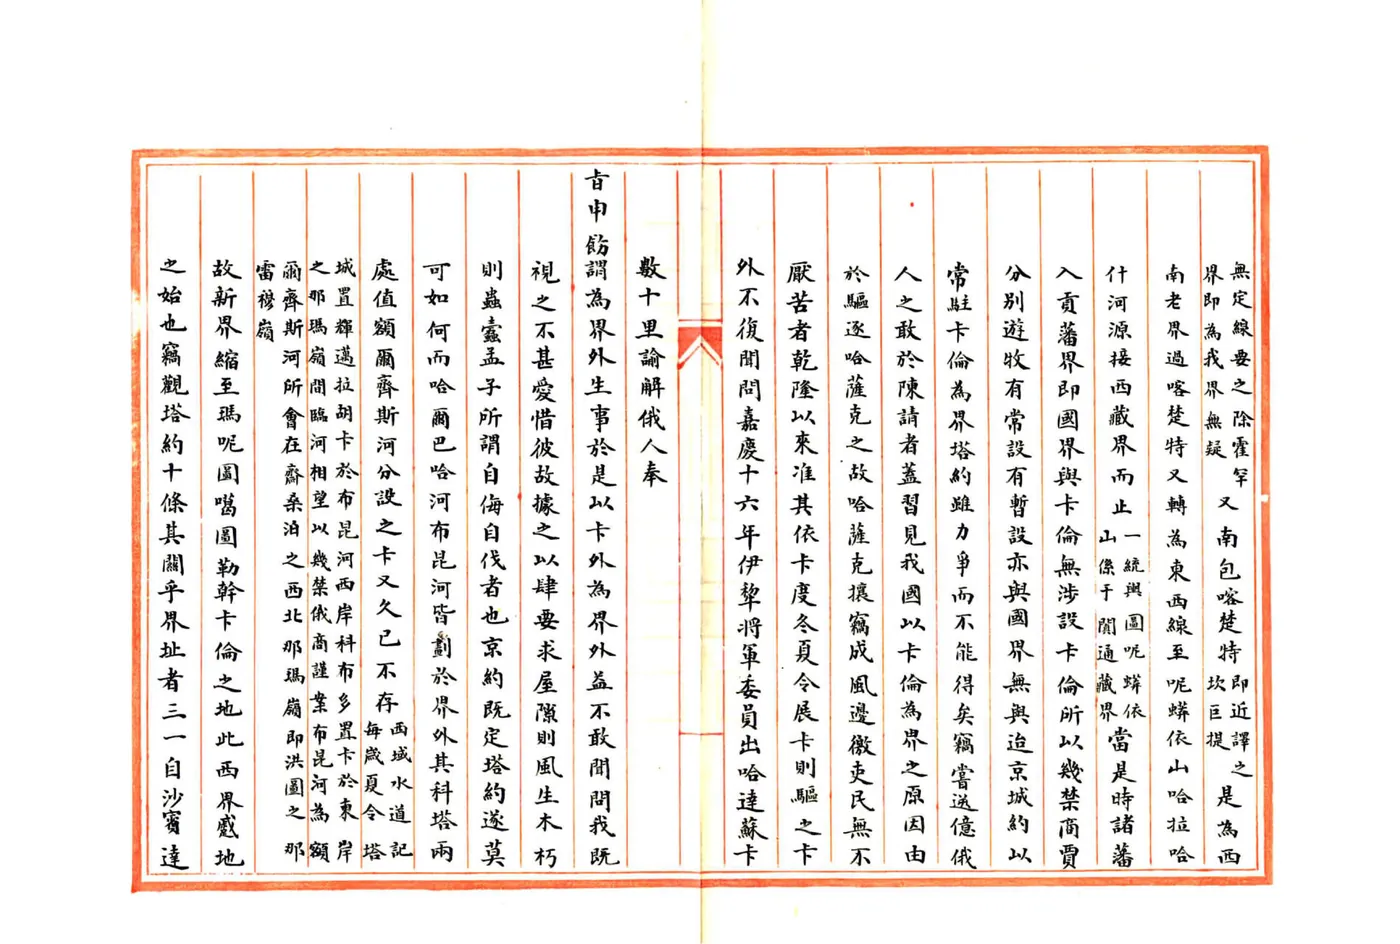 無定線要之除霍罕
界即為我界無疑
又南包喀楚特
即近譯之
坎巨提
是為西
南老界過喀楚特又轉為東西線至呢蟒依山哈拉哈
什河源接西藏界而止
一統輿圖呢蟒依
山係于闐通藏界
當是時諸藩
入貢藩界即國界與卡倫無涉設卡倫所以幾禁商賈
分別遊牧有常設有暫設亦與國界無與迨京城約以
常駐卡倫為界塔約雖力爭而不能得矣竊嘗送億俄
人之敢於陳請者蓋習見我國以卡倫為界之原因由
於驅逐哈薩克之故哈薩克攘竊成風邊徼吏民無不
厭苦者乾隆以來准其依卡度冬夏令展卡則驅之卡
外不復聞問嘉慶十六年伊犂將軍委員出哈達蘇卡
數十里諭解俄人奉
旨申飭謂為界外生事於是以卡外為界外益不敢聞問我既
視之不甚愛惜彼故據之以肆要求屋隙則風生木朽
則蟲蠹孟子所謂自侮自伐者也京約既定塔約遂莫
可如何而哈爾巴哈河布昆河皆劃於界外其科塔兩
處值額爾齊斯河分設之卡又久已不存
西域水道記
每歲夏令塔
城置輝邁拉胡卡於布昆河西岸科布多置卡於東岸
之那瑪嶺間臨河相望以幾禁俄商謹案布昆河為額
爾齊斯河所會在齋桑泊之西北那瑪嶺即洪圖之那
雷穆嶺
故新界縮至瑪呢圖噶圖勒幹卡倫之地此西界蹙地
之始也竊觀塔約十條其關乎界址者三一自沙賓達